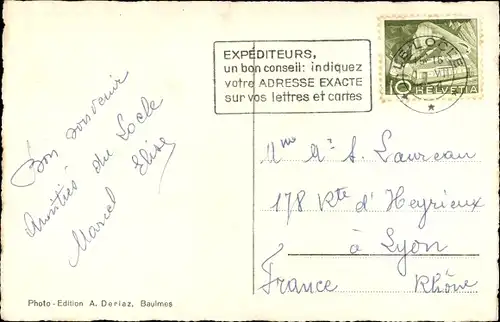 EXPÉDITEURS,
un bon conseil: indiquez
votre ADRESSE EXACTE
sur vos lettres et cartes
LE LOCLE
VIII
10 HELVETIA
Bon souvenir
Amitiés du Locle
Marcel Elise
A. S. Laureau
178 Rte d'Heyrieux
à Lyon
France Rhône
Photo-Edition A. Deriaz, Baulmes